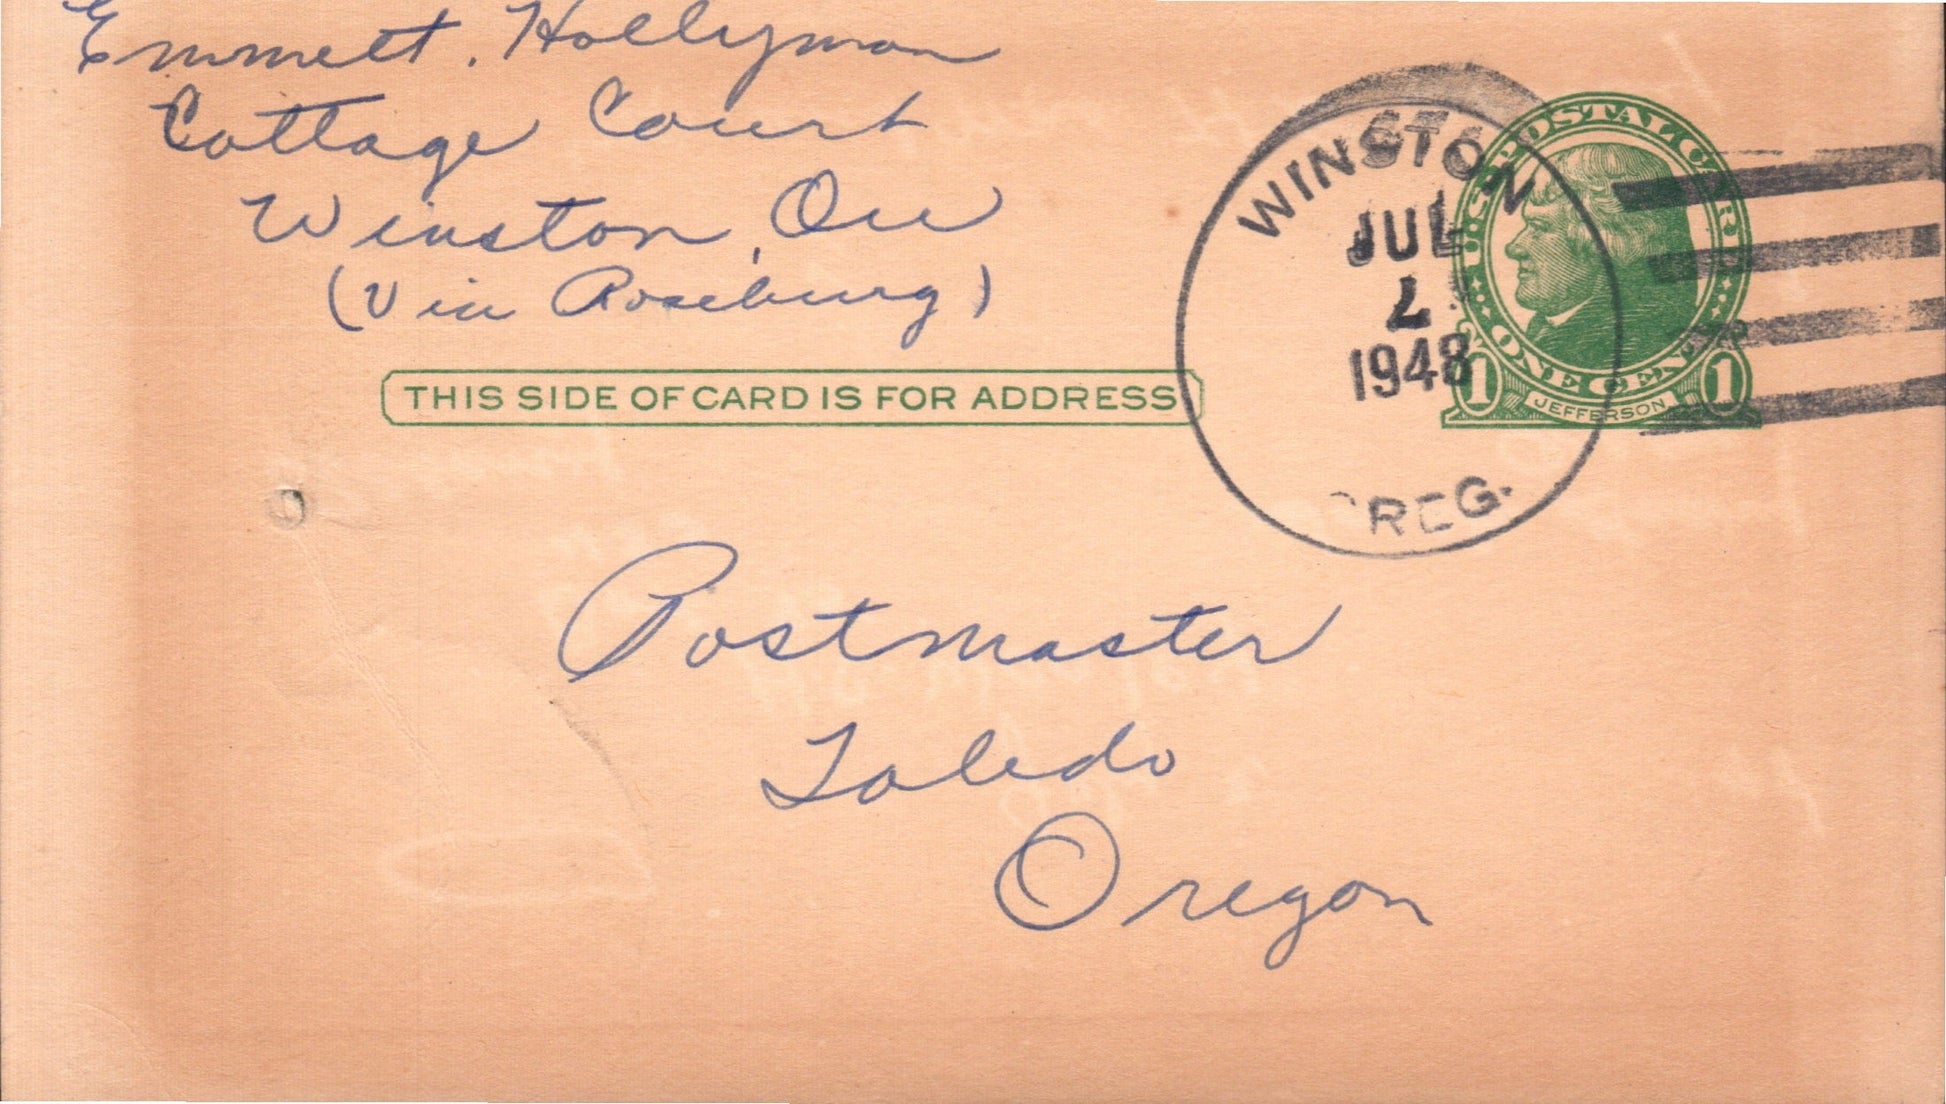 Emmett. Hollyman
Cottage Court
Winston, Ore
(Via Roseburg)
THIS SIDE OF CARD IS FOR ADDRESS
WINSTON
JUL
1948
OREG.
U·S·POSTAL CARD
ONE CENT
1 JEFFERSON 1
Postmaster
Toledo
Oregon